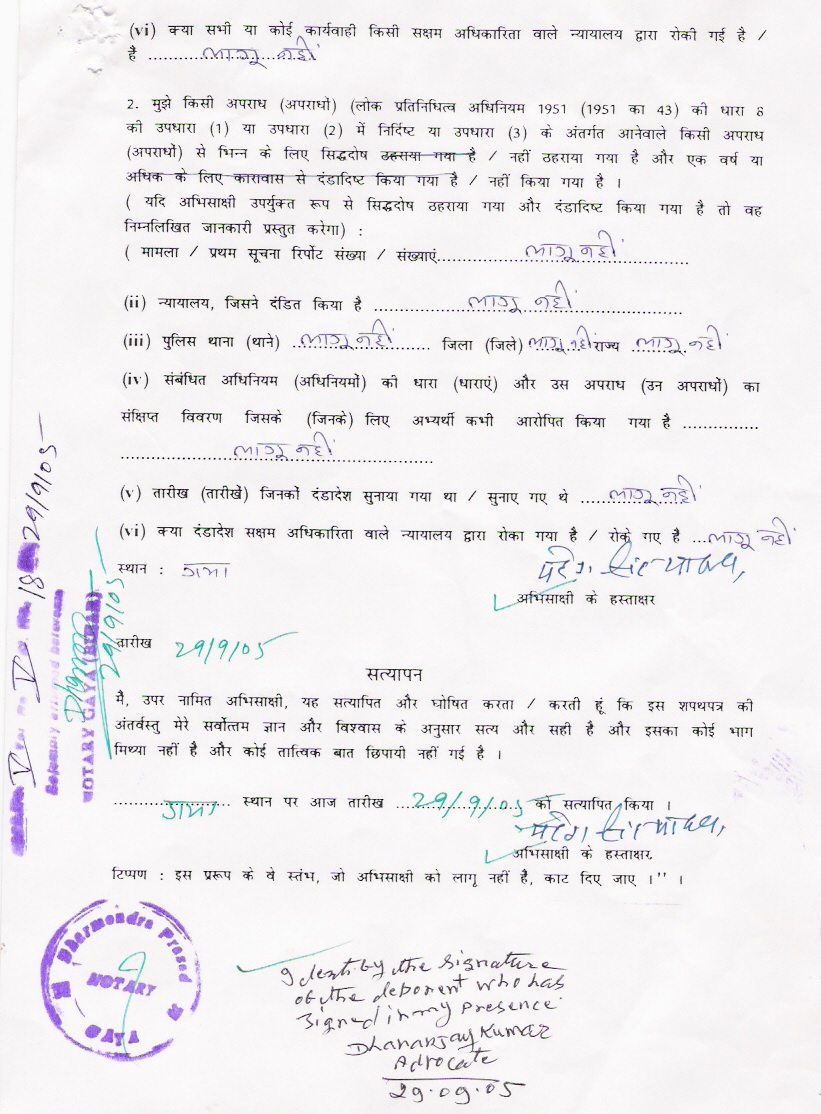 (vi) क्या सभी या कोई कार्यवाही किसी सक्षम अधिकारिता वाले न्यायालय द्वारा रोकी गई है /
है ..............लागू नहीं
2. मुझे किसी अपराध (अपराधों) (लोक प्रतिनिधित्व अधिनियम 1951 (1951 का 43) की धारा 8
की उपधारा (1) या उपधारा (2) में निर्दिष्ट या उपधारा (3) के अंतर्गत आनेवाले किसी अपराध
(अपराधों) से भिन्न के लिए सिद्धदोष ठहराया गया है / नहीं ठहराया गया है और एक वर्ष या
अधिक के लिए कारावास से दंडादिष्ट किया गया है / नहीं किया गया है ।
( यदि अभिसाक्षी उपर्युक्त रूप से सिद्धदोष ठहराया गया और दंडादिष्ट किया गया है तो वह
निम्नलिखित जानकारी प्रस्तुत करेगा) :
( मामला / प्रथम सूचना रिर्पोट संख्या / संख्याएं..............लागू नहीं..............
(ii) न्यायालय, जिसने दंडित किया है ..............लागू नहीं..............
(iii) पुलिस थाना (थाने) ..लागू नहीं........ जिला (जिले) लागू नहीं राज्य लागू नहीं
(iv) संबंधित अधिनियम (अधिनियमों) की धारा (धाराएं) और उस अपराध (उन अपराधों) का
संक्षिप्त विवरण जिसके (जिनके) लिए अभ्यर्थी कभी आरोपित किया गया है ...............
..............लागू नहीं..............
(v) तारीख (तारीखें) जिनकों दंडादेश सुनाया गया था / सुनाए गए थे .....लागू नहीं
(vi) क्या दंडादेश सक्षम अधिकारिता वाले न्यायालय द्वारा रोका गया है / रोके गए है ...लागू नहीं
स्थान : गया
अभिसाक्षी के हस्ताक्षर
तारीख 29/9/05
सत्यापन
मै, उपर नामित अभिसाक्षी, यह सत्यापित और घोषित करता / करती हूं कि इस शपथपत्र की
अंतर्वस्तु मेरे सर्वोत्तम ज्ञान और विश्वास के अनुसार सत्य और सही है और इसका कोई भाग
मिथ्या नहीं है और कोई तात्विक बात छिपायी नहीं गई है ।
........गया........ स्थान पर आज तारीख ...29/9/05... को सत्यापित किया ।
अभिसाक्षी के हस्ताक्षर
टिप्पण : इस प्ररूप के वे स्तंभ, जो अभिसाक्षी को लागू नहीं है, काट दिए जाए ।'' ।
18
29/9/05
NOTARY GAYA (BIHAR)
29/9/05
Dharmendra Prasad
NOTARY
GAYA
Identify the Signature
of the deponent who has
Signed in my presence.
Dhananjay Kumar
Advocate
29.09.05